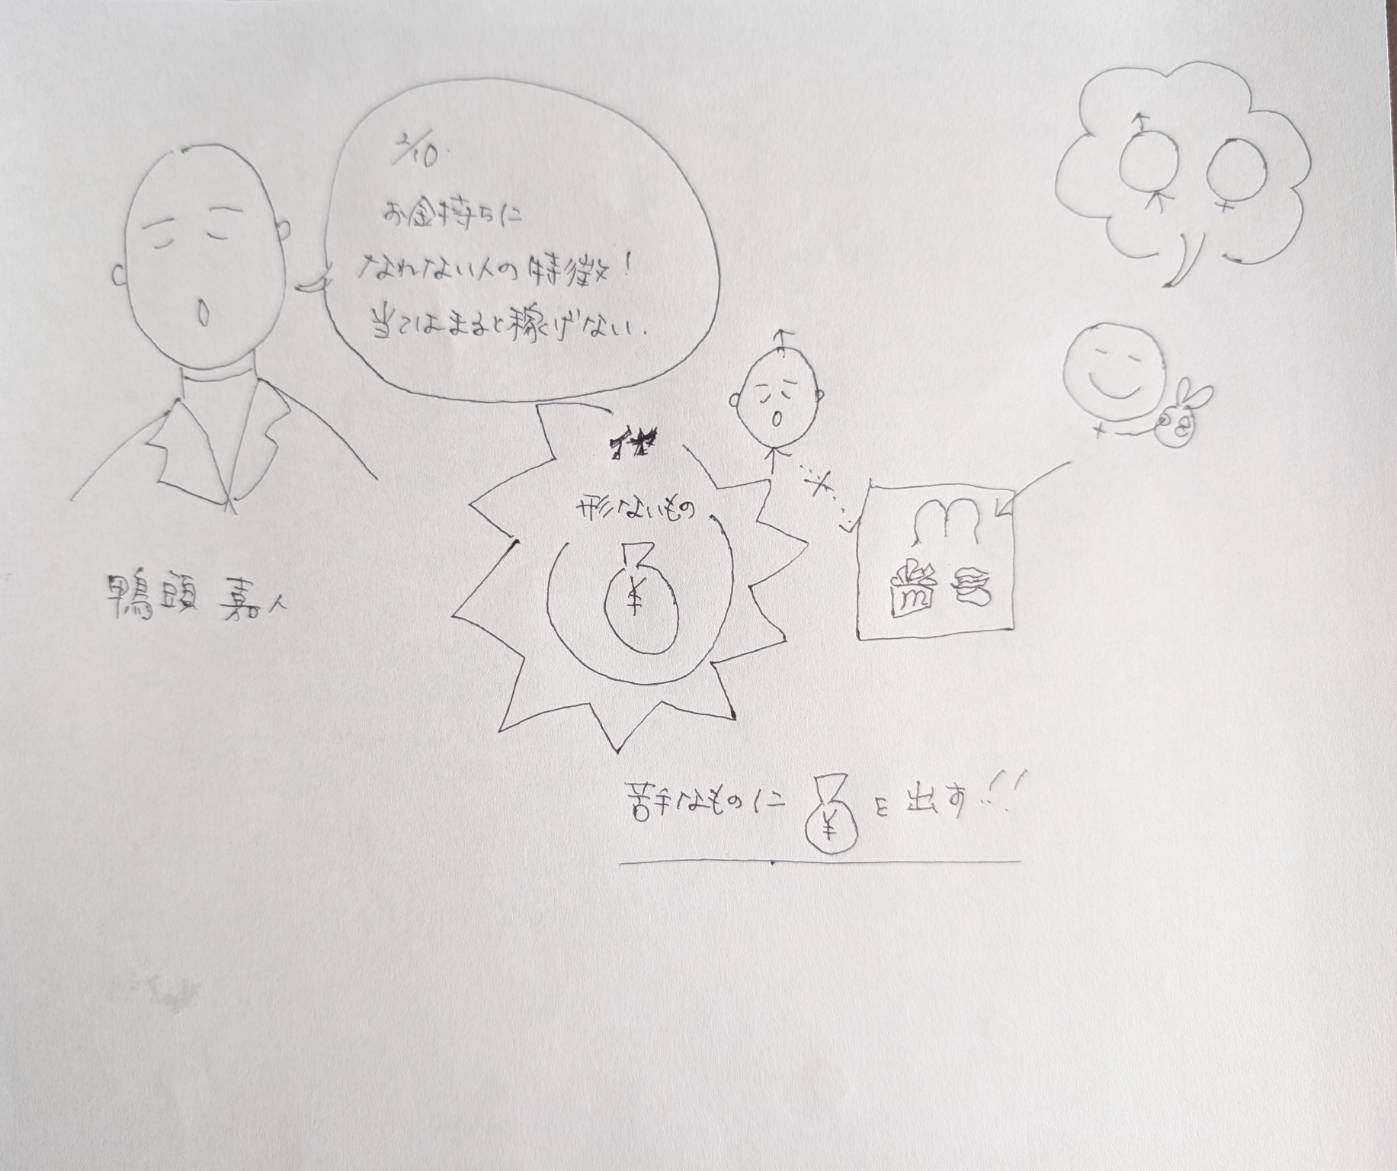 2/10.
お金持ちに
なれない人の特徴!
当てはまると稼げない.
鴨頭 嘉人
形ないもの
¥
m
苦手なものに ¥ を出す!!